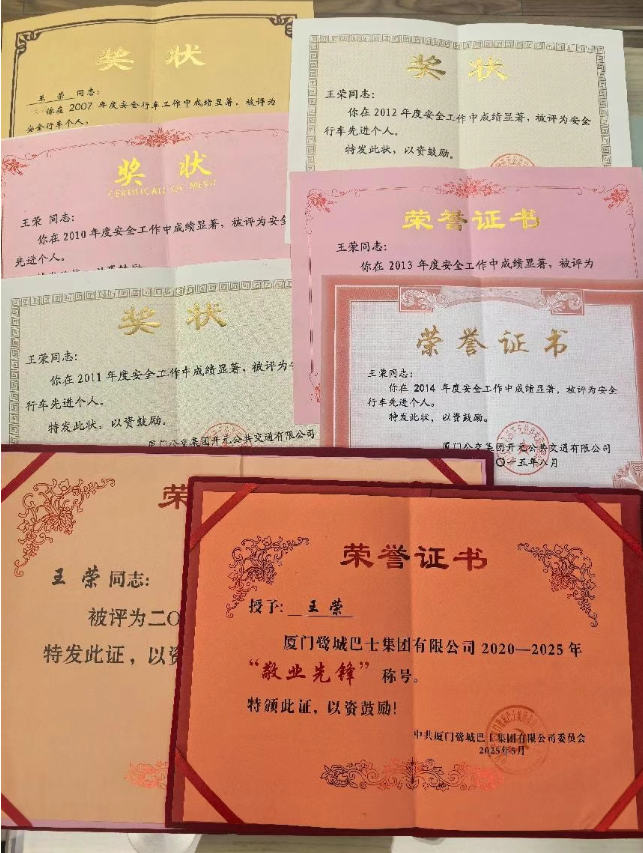 奖状
王荣 同志:
你在 2007 年度安全行车工作中成绩显著，被评为
安全行车个人。
奖状
王荣同志:
你在 2012 年度安全工作中成绩显著，被评为安全
行车先进个人。
特发此状，以资鼓励。
奖状
CERTIFICATE OF MERIT
王荣 同志:
你在 2010 年度安全工作中成绩显著，被评为安全
先进个人。
荣誉证书
王荣同志:
你在 2013 年度安全工作中成绩显著，被评为
奖状
王荣同志:
你在 2011 年度安全工作中成绩显著，被评为
行车先进个人。
特发此状，以资鼓励。
厦门公交集团开元公共交通有限公司
荣誉证书
王荣同志:
你在 2014 年度安全工作中成绩显著，被评为安全
行车先进个人。
特发此状，以资鼓励。
厦门公交集团开元公共交通有限公司
〇一五年八月
荣
王荣同志:
被评为二〇
特发此证，以资
荣誉证书
授予: 王荣
厦门鹭城巴士集团有限公司 2020—2025 年
“敬业先锋” 称号。
特颁此证，以资鼓励！
中共厦门鹭城巴士集团有限公司委员会
2025年5月